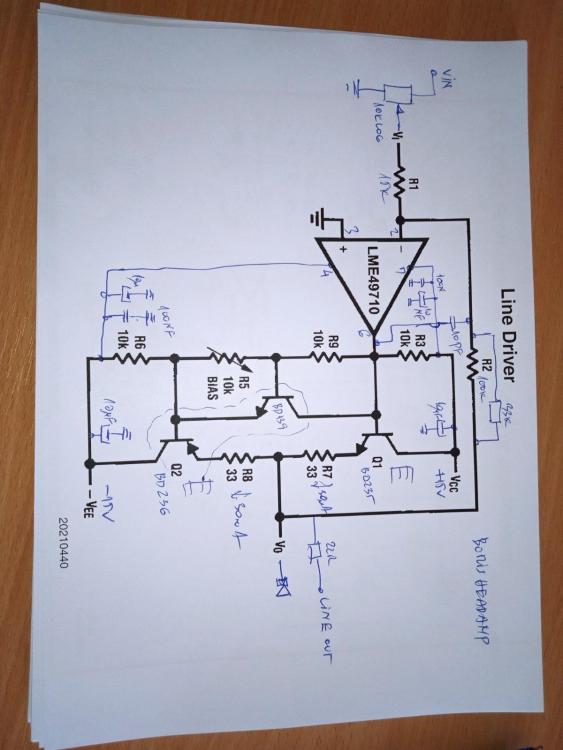 Line Driver
ViN
10KLOG
Vi
R1
10K
2
3
−
+
LME49710
7
4
6
100N
10PF
R2
100K
33K
R3
10k
R9
10k
R5
10k
BIAS
R6
10k
100NF
10µF
BD139
Q1
BD235
E
VCC
+15V
R7
33
R8
33
50mA
Q2
BD236
E
−VEE
−15V
VO
22R
LINE OUT
BORIS HEADAMP
20210440